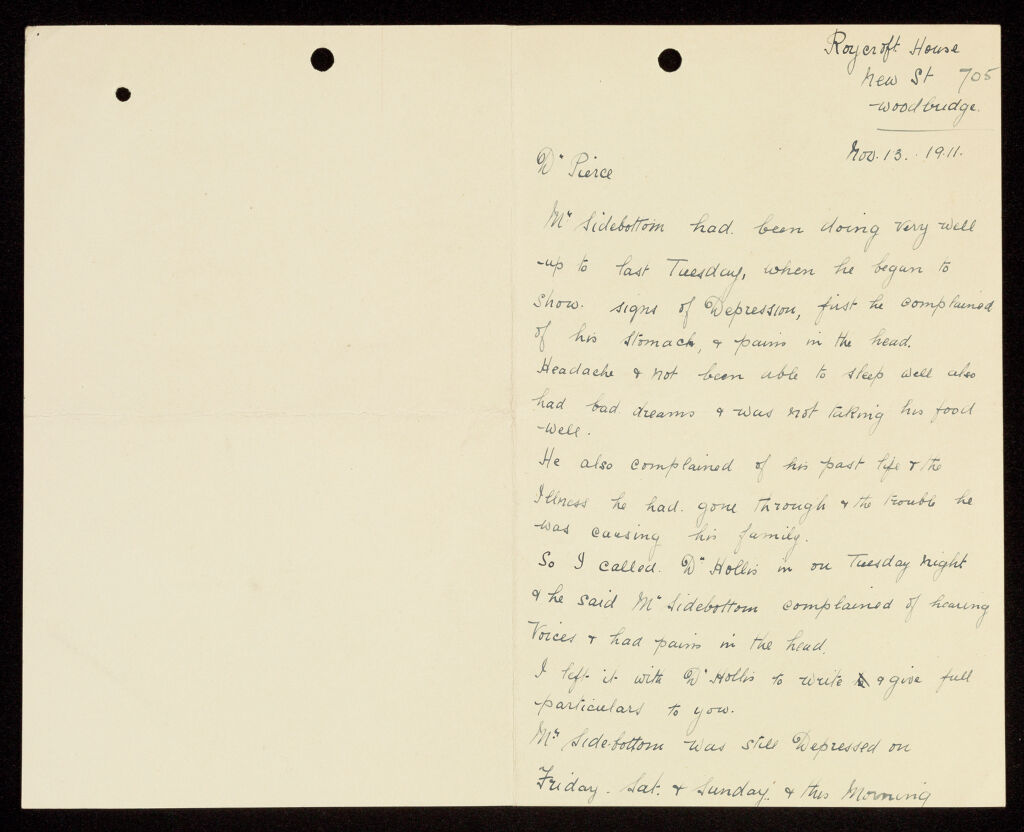 Roycroft House
New St 705
Woodbridge.
Nov. 13. 1911.
Dr Pierce
Mr Sidebottom had been doing very well
up to last Tuesday, when he began to
show signs of Depression, first he complained
of his stomach, & pains in the head.
Headache & not been able to sleep well also
had bad dreams & was not taking his food
well.
He also complained of his past life & the
Illness he had gone through & the trouble he
was causing his family.
So I called Dr Hollis in on Tuesday night
& he said Mr Sidebottom complained of hearing
Voices & had pains in the head.
I left it with Dr Hollis to write & give full
particulars to you.
Mr Sidebottom was still Depressed on
Friday. Sat. & Sunday. & this Morning